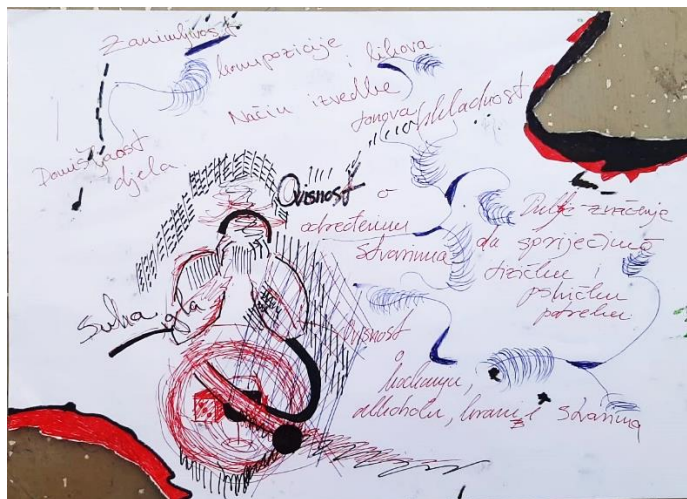 Zanimljivost
kompozicije i likova
Način izvedbe
tonova (skladnost
Domišljatost
djela
Ovisnost o
određenim
stvarima
Dublje značenje
da spriječimo
fizičku i
psihičku
potrebu
suha igla
Ovisnost
o
kockanju,
alkoholu, hrani i stvarima